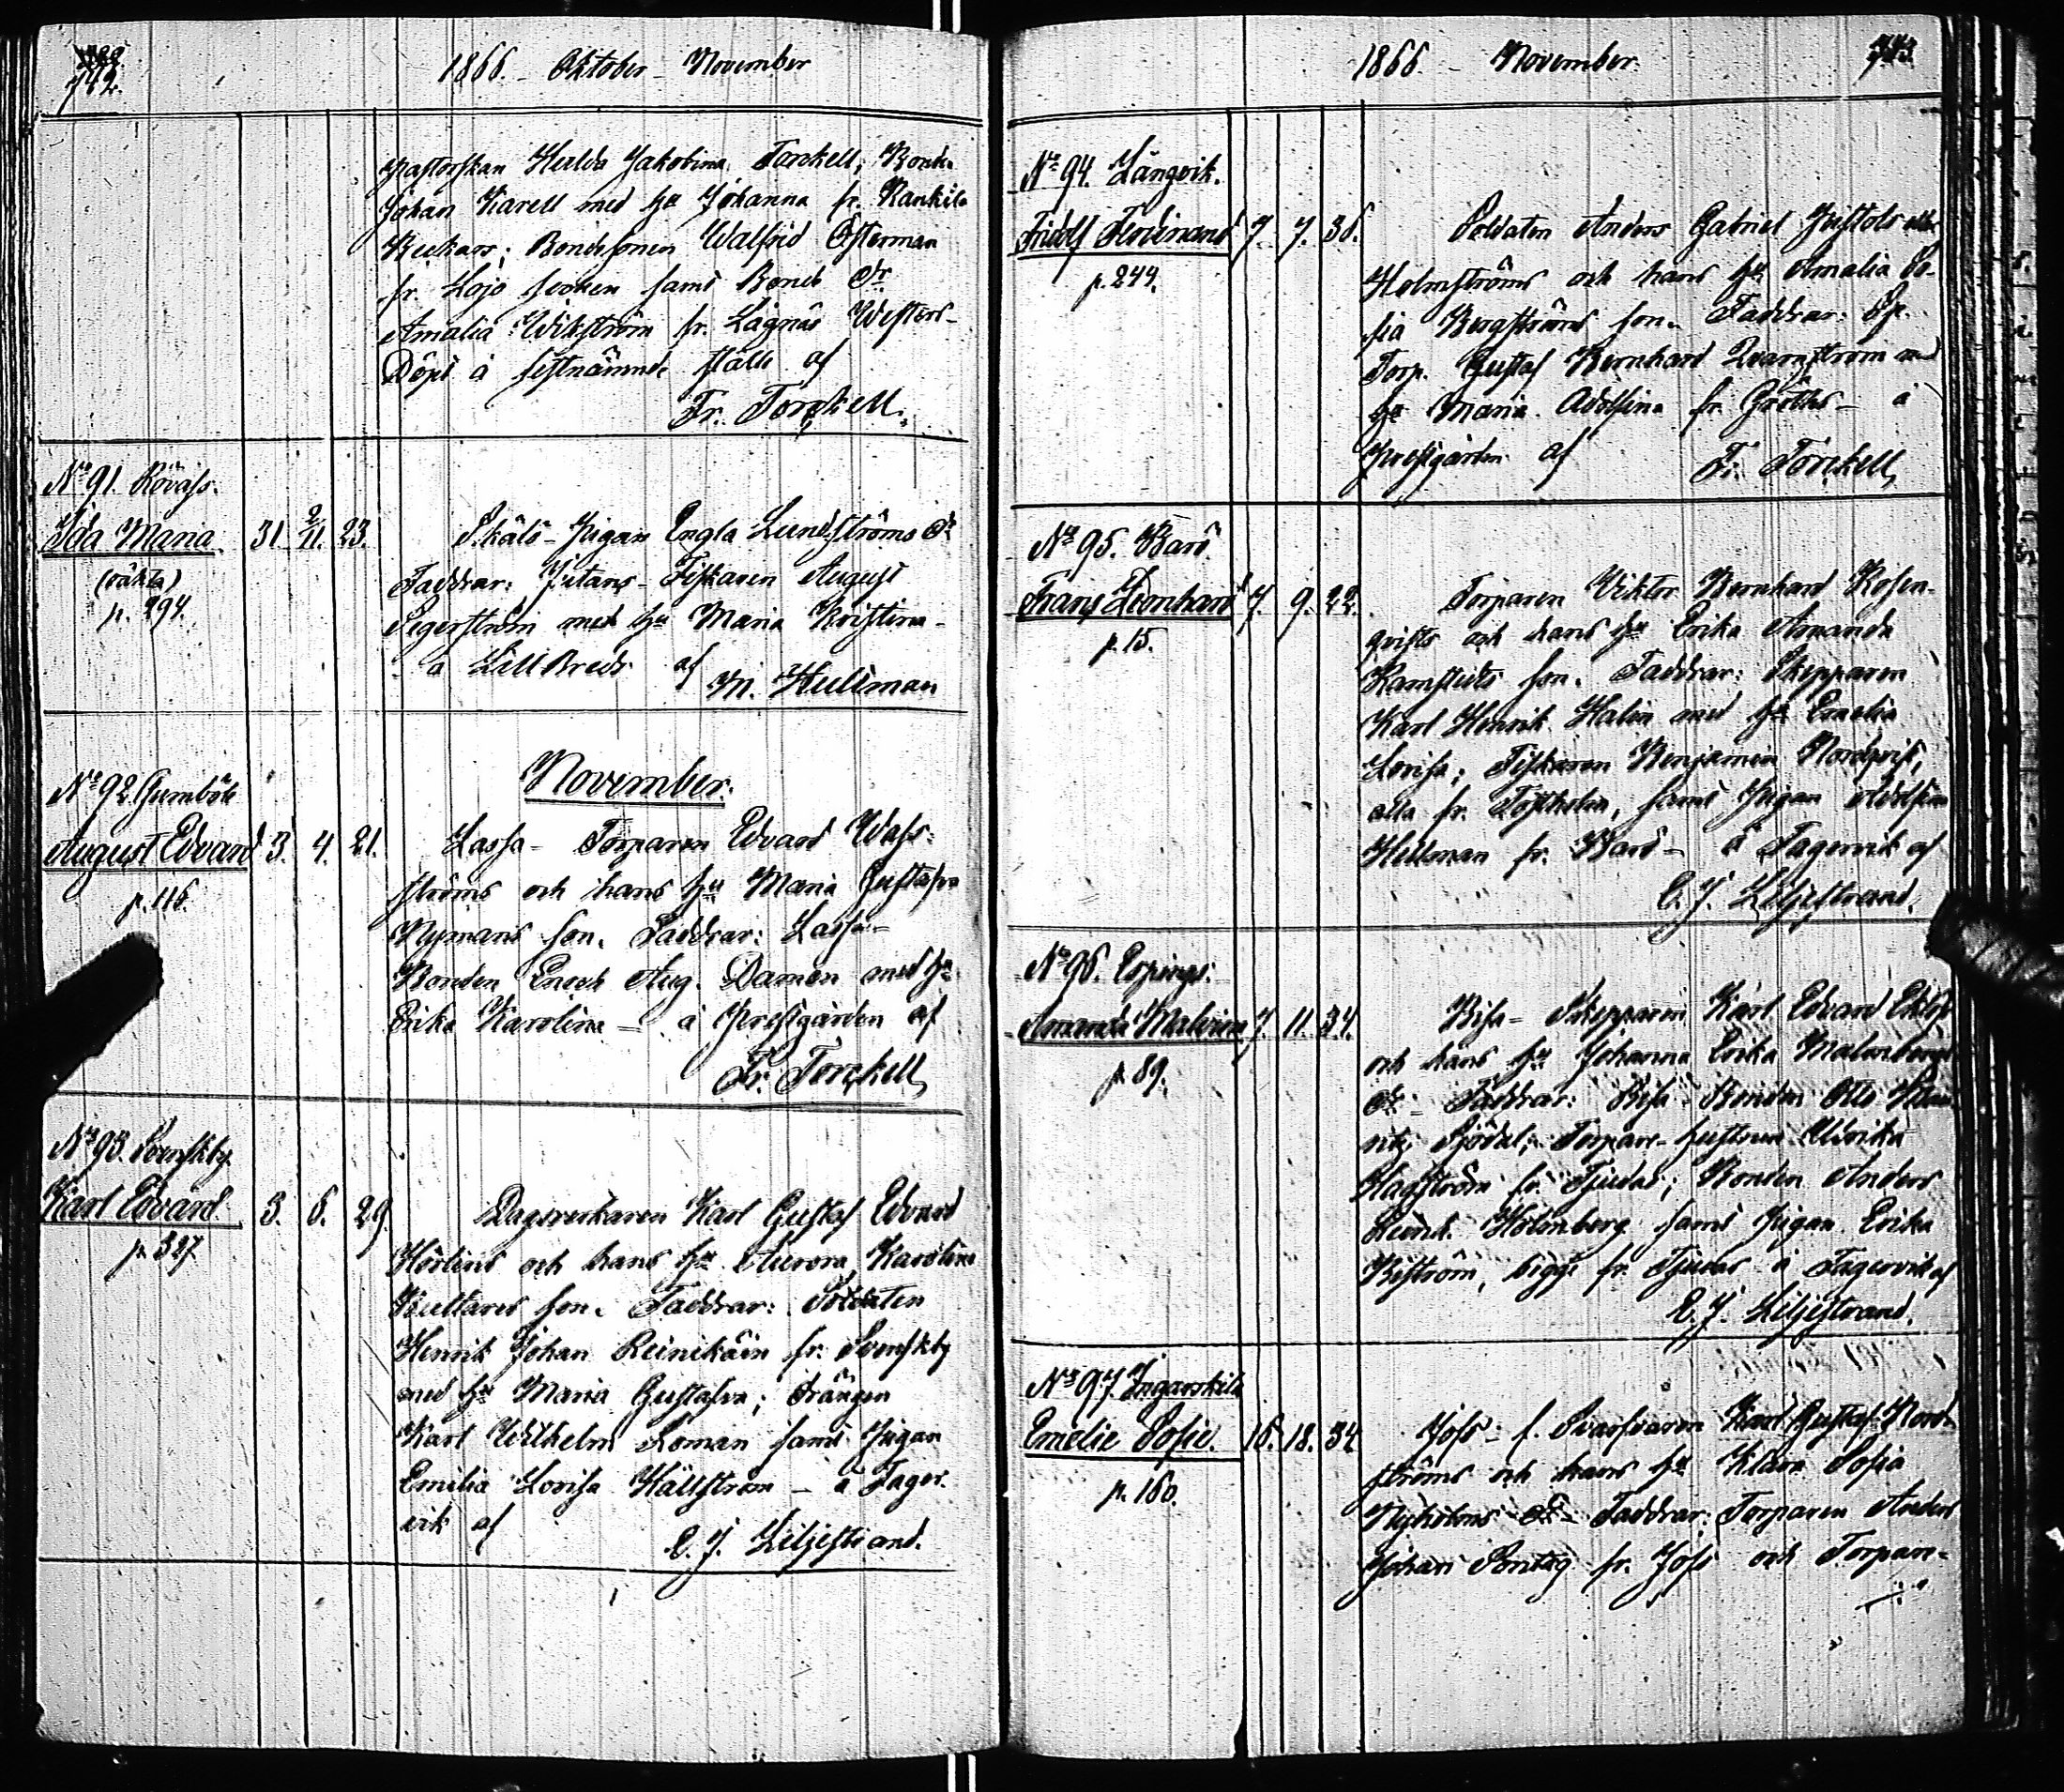 742.
1866. - Oktober - November
pastorskan Hulda Jakobina Torckell; Bonden
Johan Karell med hu Johanna fr. Rankila
Beckars; Bondesonen Walfrid Österman
fr. Lojo socken samt Bonde dr
Amalia Wikström fr. Lägnäs Westers-
Döpt å sistnämnde ställe af
Fr. Torckell.
No 91. Rövass.
Ida Maria. 31. 2/11. 23.
(oäkta)
p. 294.
Skälö-Pigan Engla Lundströms dr
Faddrar: Jutans-Fiskaren August
Segerström med hu Maria Kristina-
å Lill Breds af
M. Hultman
November.
No 92. Gumböle
August Edvard 3. 4. 21.
p. 116.
Lassa- Torparen Edvard Wass-
ströms och hans hu Maria Gustafva
Nymans son. Faddrar: Lassa-
Bonden Enoch Aug. Damén med hu
Erika Karolina - å Prestgården af
Fr. Torckell
No 93. Svenskby.
Karl Edvard. 3. 6. 29.
p. 327
Dagsverkaren Karl Gustaf Edvard
Hörlins och hans hu Aurora Karolina
Kultares son. Faddrar: Soldaten
Henrik Johan Reinikäin fr. Svenskby
med hu Maria Gustafva; Drängen
Karl Wilhelm Roman samt Pigan
Emilia Lovisa Hällström - å Fager-
vik af
C. J. Liljestrand.
1866. - November.
743.
No 94. Långvik.
Fridolf Ferdinand 7. 7. 36.
p. 244.
Soldaten Anders Gabriel Gustols eller
Holmströms och hans hu Amalia So-
fia Bergströms son. Faddrar: Sp.
Torp. Gustaf Bernhard Qvarnström med
hu Maria Adolfina fr. Gröths - å
Prestgården af
Fr. Torckell
No 95. Barö.
Frans Leonhard 7. 9. 22.
p. 15.
Torparen Viktor Bernhard Rosen-
qvists och hans hu Erika Amanda
Ramstedts son. Faddrar: Skepparen
Karl Henrik Halin med hu Emelia
Lovisa; Fiskaren Benjamin Nordqvist,
alla fr. Tostholm, samt Pigan Adolfina
Hellman fr. Barö - å Fagervik af
C. J. Liljestrand.
No 96. Espings.
Amanda Malvina 7. 11. 34.
p. 89.
Bisa- Skepparen Karl Edvard Eklöfs
och hans hu Johanna Erika Malmbergs
dr - Faddrar: Bisa- Bonden Otto
Sjödal; Torpare-hustrun Ulrika
Hagström fr. Tjudas; Bonden Anders
Reinh. Holmberg samt Pigan Erika
Biström, bägge fr. Tjudas å Fagervik af
C. J. Liljestrand.
No 97. Ingarskila
Emelie Sofie. 16. 18. 34.
p. 160.
Joss- f. Svarfvaren Karl Gustaf Nord-
ströms och hans hu Klara Sofia
Nyholms dr - Faddrar: Torparen Anders
Johan Söntag fr. Joss och Torpare-